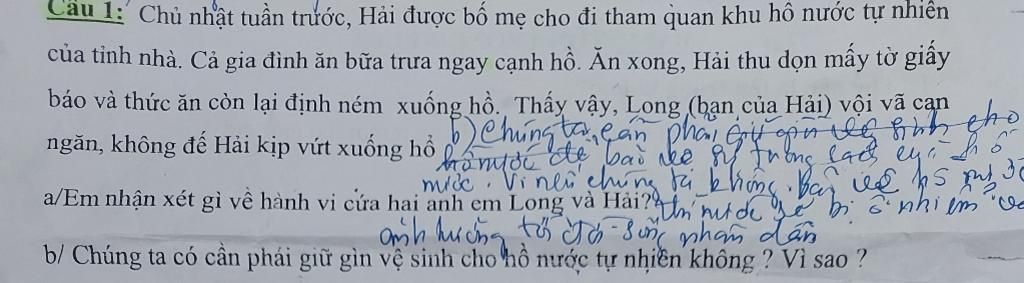 Câu 1: Chủ nhật tuần trước, Hải được bố mẹ cho đi tham quan khu hồ nước tự nhiên
của tỉnh nhà. Cả gia đình ăn bữa trưa ngay cạnh hồ. Ăn xong, Hải thu dọn mấy tờ giấy
báo và thức ăn còn lại định ném xuống hồ. Thấy vậy, Long (bạn của Hải) vội vã can
ngăn, không để Hải kịp vứt xuống hồ
b) Chúng ta cần phải giữ gìn vệ sinh cho
hồ nước để bảo vệ sự trong sạch của hồ
nước. Vì nếu chúng ta không bảo vệ
thì nước sẽ bị ô nhiễm
ảnh hưởng tới đời sống nhân dân
a/Em nhận xét gì về hành vi của hai anh em Long và Hải?
b/ Chúng ta có cần phải giữ gìn vệ sinh cho hồ nước tự nhiên không ? Vì sao ?